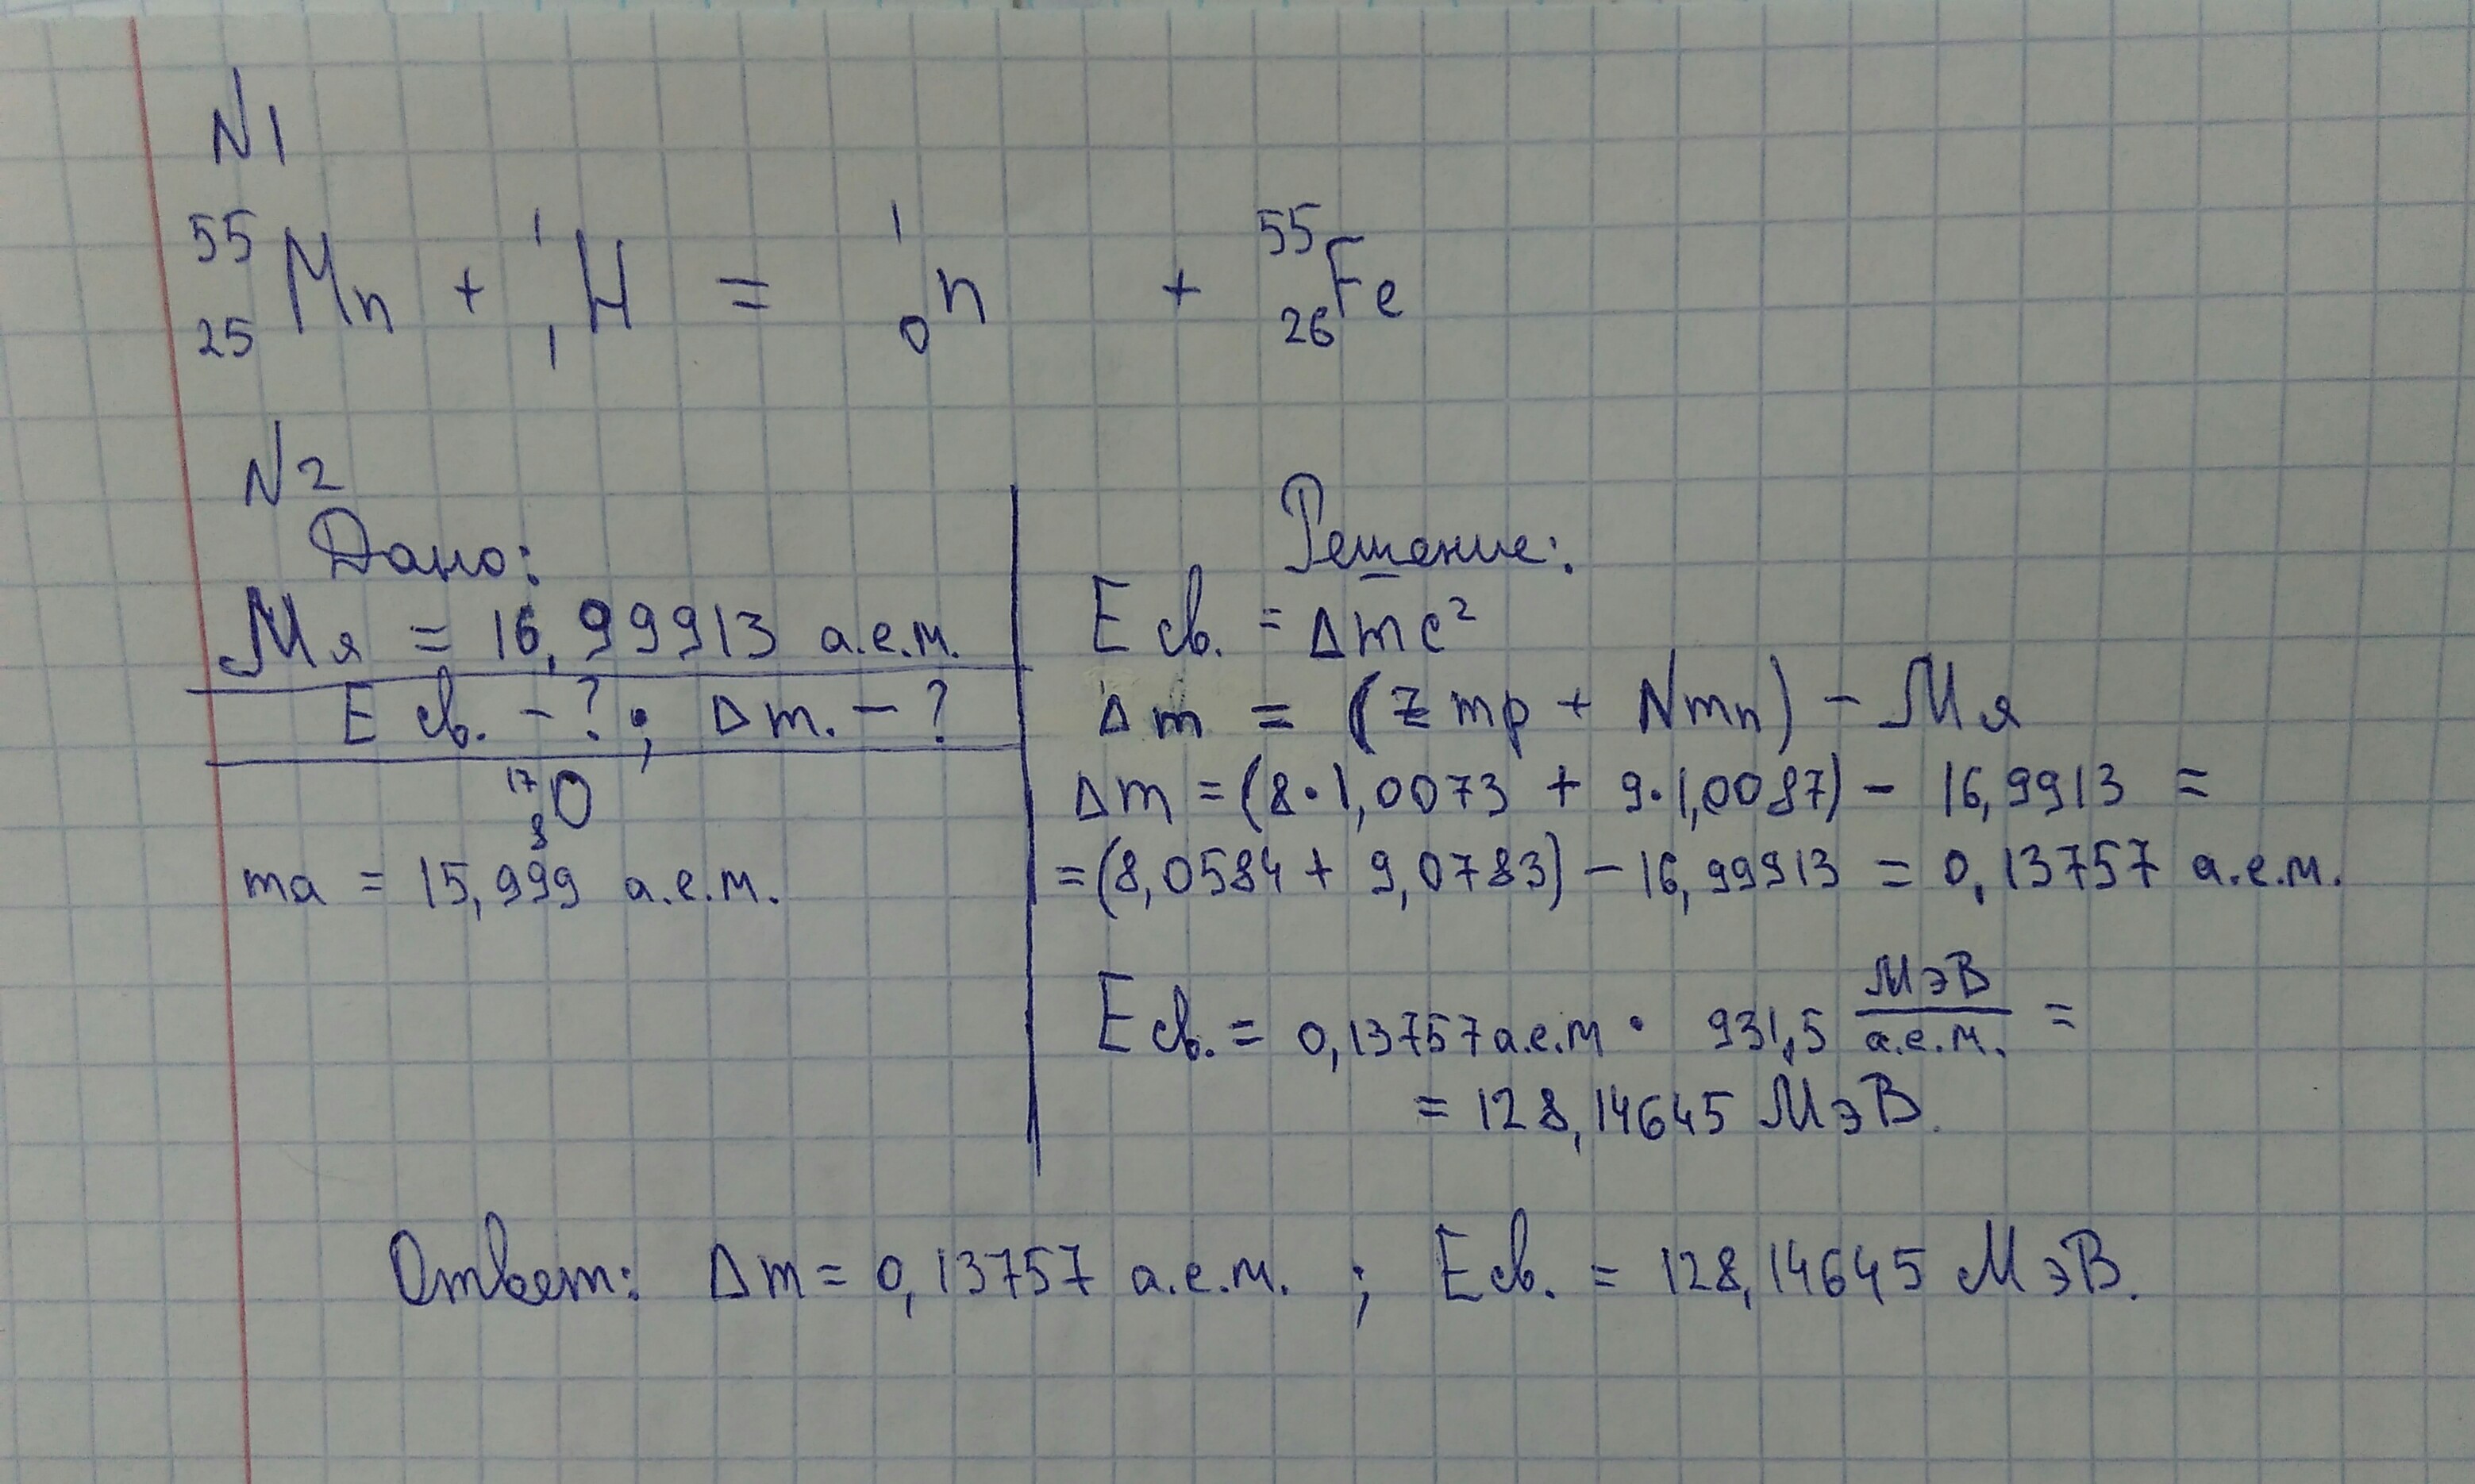 N1
⁵⁵₂₅Mn + ¹₁H = ¹₀n + ⁵⁵₂₆Fe
N2
Дано:
Mя = 16,99913 а.е.м.
Eсв. - ?; Δm. - ?
¹⁷₈O
ma = 15,999 а.е.м.
Решение:
Eсв. = Δmc²
Δm = (Zmp + Nmn) - Mя
Δm = (8·1,0073 + 9·1,0087) - 16,9913 =
= (8,0584 + 9,0783) - 16,99913 = 0,13757 а.е.м.
Eсв. = 0,13757 а.е.м · 931,5 МэВ/а.е.м. =
= 128,14645 МэВ.
Ответ: Δm = 0,13757 а.е.м. ; Eсв. = 128,14645 МэВ.